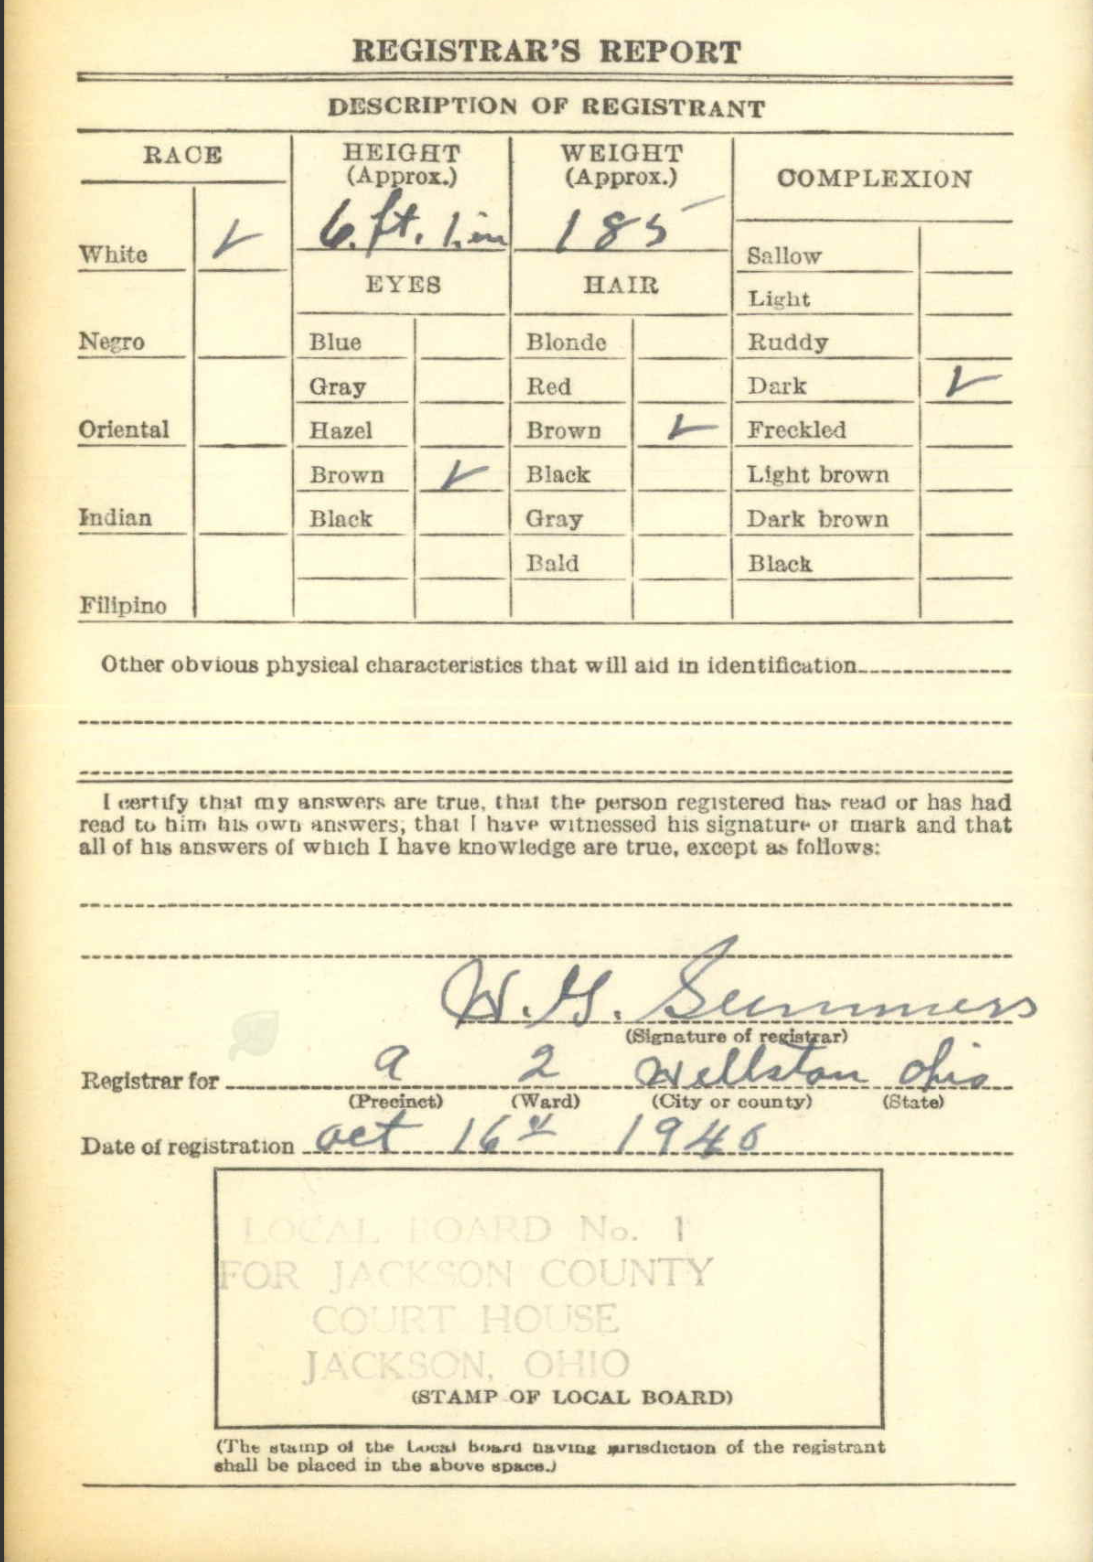 REGISTRAR'S REPORT
DESCRIPTION OF REGISTRANT
RACE
HEIGHT
(Approx.)
WEIGHT
(Approx.)
COMPLEXION
6 ft. 1 in
185
White ✓
EYES
HAIR
Sallow
Light
Negro
Blue
Blonde
Ruddy
Gray
Red
Dark ✓
Oriental
Hazel
Brown ✓
Freckled
Brown ✓
Black
Light brown
Indian
Black
Gray
Dark brown
Bald
Black
Filipino
Other obvious physical characteristics that will aid in identification
I certify that my answers are true, that the person registered has read or has had
read to him his own answers, that I have witnessed his signature or mark and that
all of his answers of which I have knowledge are true, except as follows:
W. G. Summers
(Signature of registrar)
Registrar for a 2 Wellston Ohio
(Precinct) (Ward) (City or county) (State)
Date of registration Oct 16th 1940
LOCAL BOARD No. 1
FOR JACKSON COUNTY
COURT HOUSE
JACKSON, OHIO
(STAMP OF LOCAL BOARD)
(The stamp of the Local board having jurisdiction of the registrant
shall be placed in the above space.)